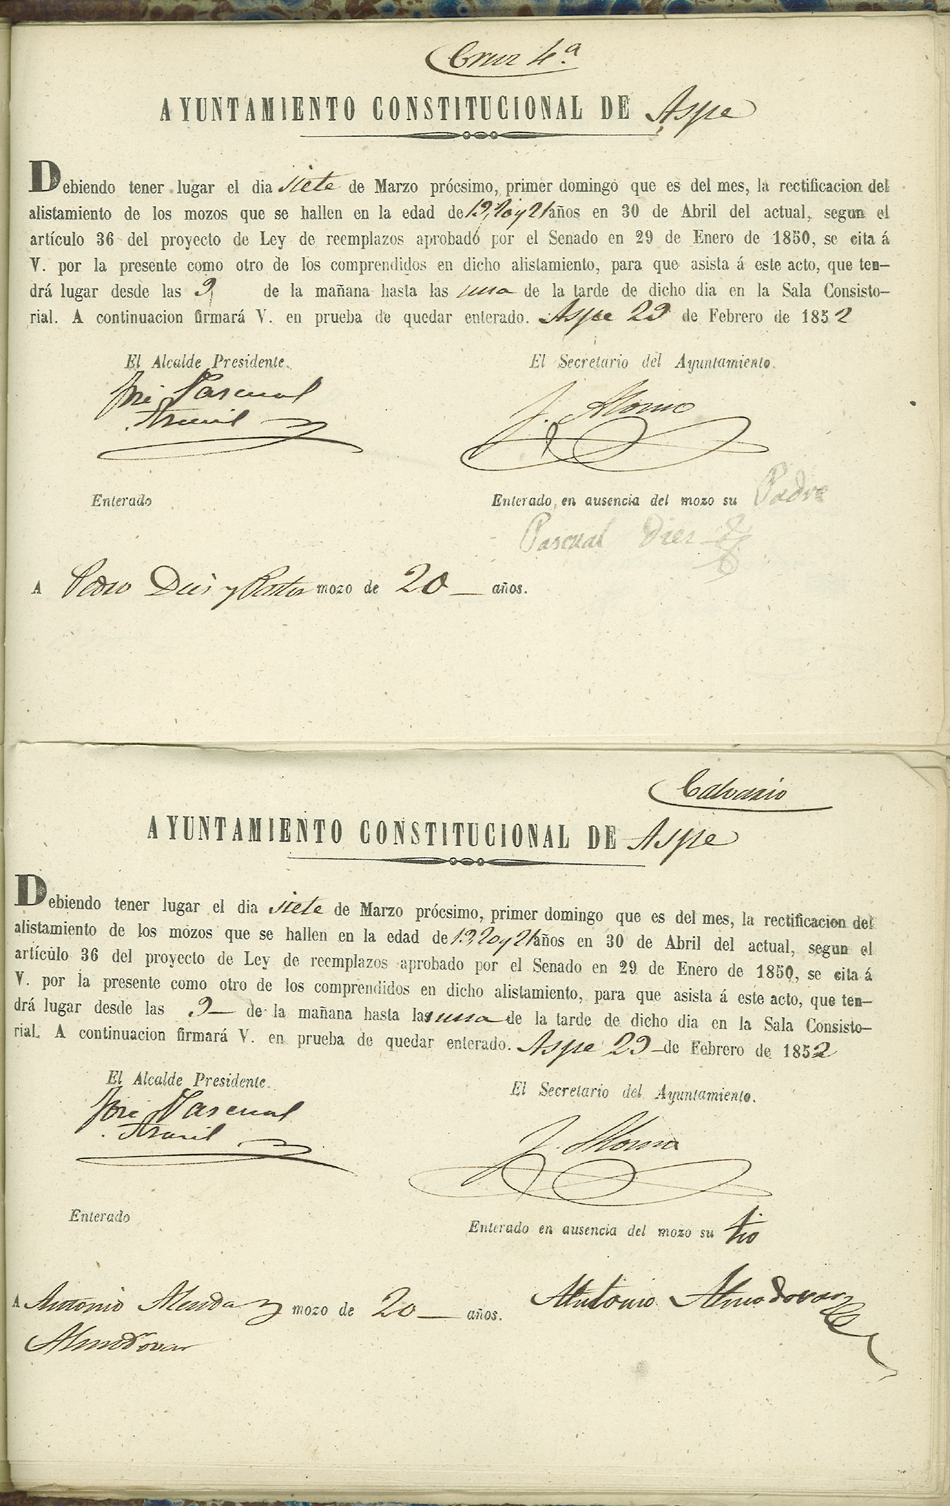 Cruz 4ª
AYUNTAMIENTO CONSTITUCIONAL DE Aspe
Debiendo tener lugar el dia siete de Marzo prócsimo, primer domingo que es del mes, la rectificacion del
alistamiento de los mozos que se hallen en la edad de 19, 20 y 21 años en 30 de Abril del actual, segun el
artículo 36 del proyecto de Ley de reemplazos aprobado por el Senado en 29 de Enero de 1850, se cita á
V. por la presente como otro de los comprendidos en dicho alistamiento, para que asista á este acto, que ten-
drá lugar desde las 9 de la mañana hasta las una de la tarde de dicho dia en la Sala Consisto-
rial. A continuacion firmará V. en prueba de quedar enterado. Aspe 29 de Febrero de 1852
El Alcalde Presidente. El Secretario del Ayuntamiento.
José Pascual J. Alonso
Enterado Enterado en ausencia del mozo su Padre
Pascual Diez
A Pedro Diez y mozo de 20 años.
Calvario
AYUNTAMIENTO CONSTITUCIONAL DE Aspe
Debiendo tener lugar el dia siete de Marzo prócsimo, primer domingo que es del mes, la rectificacion del
alistamiento de los mozos que se hallen en la edad de 19, 20 y 21 años en 30 de Abril del actual, segun el
artículo 36 del proyecto de Ley de reemplazos aprobado por el Senado en 29 de Enero de 1850, se cita á
V. por la presente como otro de los comprendidos en dicho alistamiento, para que asista á este acto, que ten-
drá lugar desde las 9 de la mañana hasta las una de la tarde de dicho dia en la Sala Consisto-
rial. A continuacion firmará V. en prueba de quedar enterado. Aspe 29 de Febrero de 1852
El Alcalde Presidente. El Secretario del Ayuntamiento.
José Pascual J. Alonso
Enterado Enterado en ausencia del mozo su tio
A Antonio mozo de 20 años. Antonio Almodovar
Almodovar